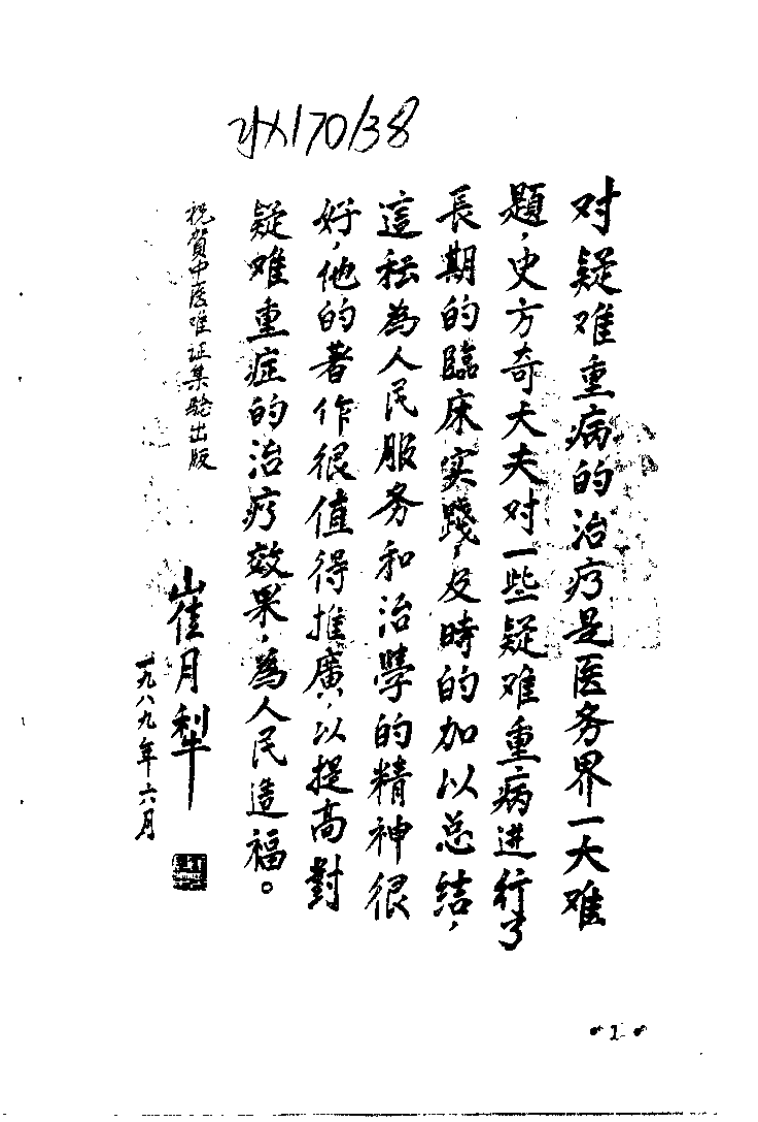 对疑难重病的治疗是医务界一大难
题，史方奇大夫对一些疑难重病进行了
長期的臨床实踐，及時的加以总结，
這种為人民服务和治學的精神很
好，他的著作很值得推廣，以提高對
疑难重症的治疗效果，為人民造福。
祝賀中医难证集验出版
崔月犁
一九八九年六月
1